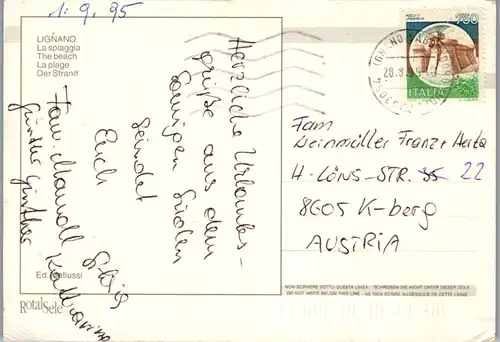 1. 9. 95
LIGNANO
La spiaggia
The beach
La plage
Der Strand
Herzliche Urlaubs-
grüße aus dem
sonnigen Süden
sendet
Euch
Fam. Mandl
Günther Günther
Katharina
Ed. Matiussi
RotalSele
750
ITALIA
Fam
Weinmüller Franz + Herta
H-LÖNS-STR. 22
8605 K-berg
AUSTRIA
NON SCRIVERE SOTTO QUESTA LINEA - SCHREIBEN SIE NICHT UNTER DIESER ZEILE
DO NOT WRITE BELOW THIS LINE - NE RIEN ECRIRE AU-DESSOUS DE CETTE LIGNE